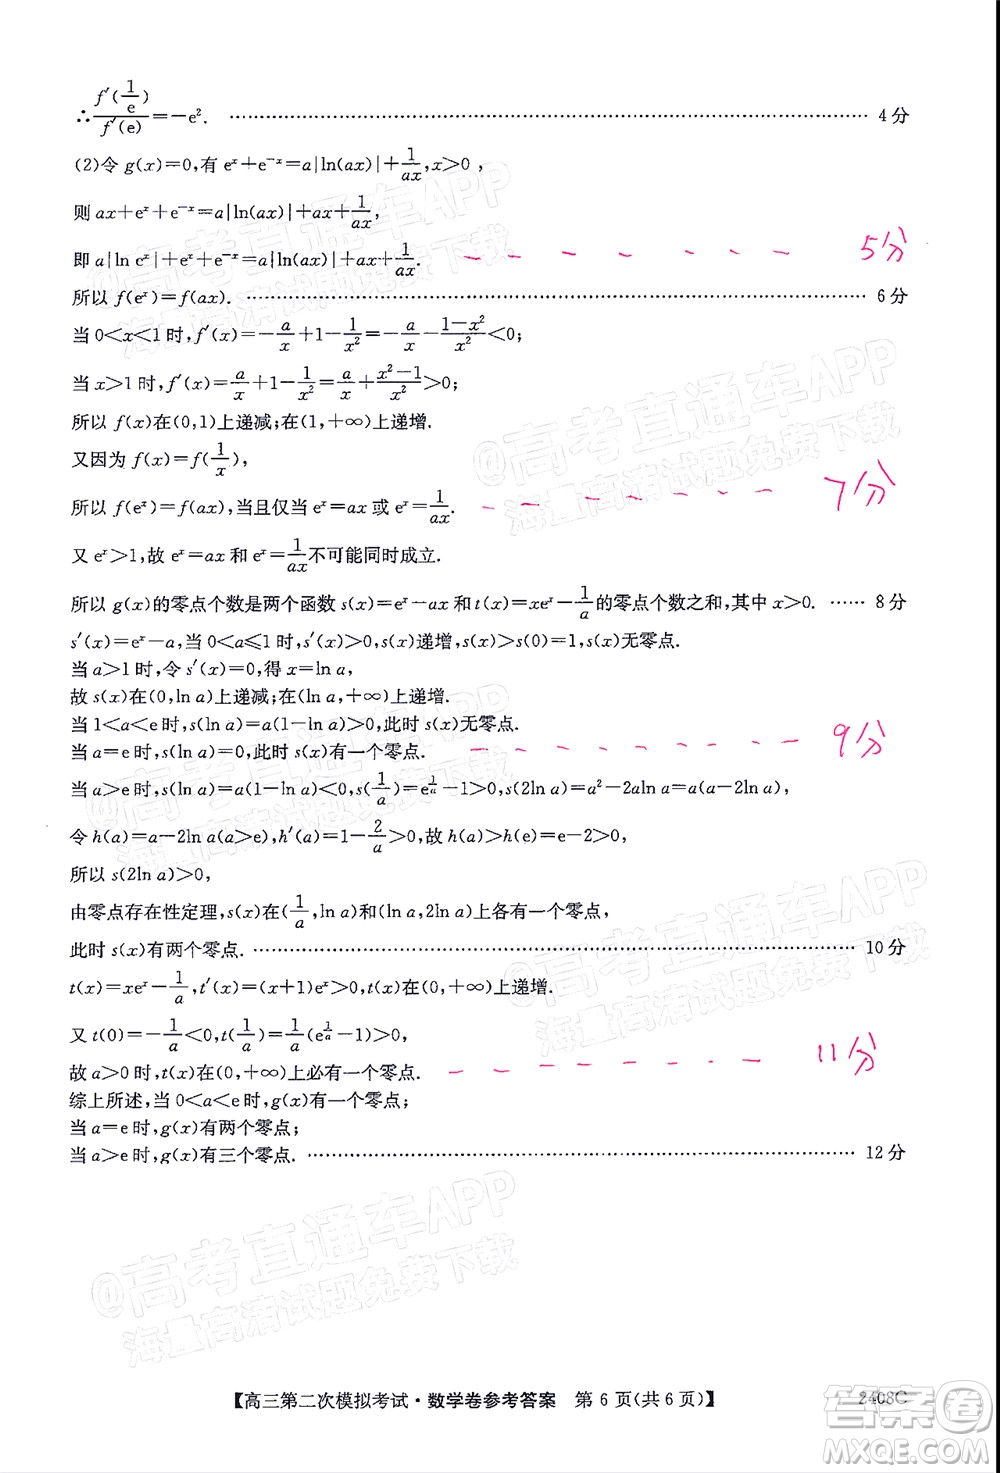 ∴f′(1/e)/f′(e)=−e². ………… 4 分
(2)令 g(x)=0,有 eˣ+e⁻ˣ=a|ln(ax)|+1/ax,x>0 ,
则 ax+eˣ+e⁻ˣ=a|ln(ax)|+ax+1/ax,
即 a|ln eˣ|+eˣ+e⁻ˣ=a|ln(ax)|+ax+1/ax. 5分
所以 f(eˣ)=f(ax). ………… 6 分
当 0<x<1 时,f′(x)=−a/x+1−1/x²=−a/x−(1−x²)/x²<0;
当 x>1 时,f′(x)=a/x+1−1/x²=a/x+(x²−1)/x²>0;
所以 f(x)在(0,1)上递减;在(1,+∞)上递增.
又因为 f(x)=f(1/x),
所以 f(eˣ)=f(ax),当且仅当 eˣ=ax 或 eˣ=1/ax. 7分
又 eˣ>1,故 eˣ=ax 和 eˣ=1/ax不可能同时成立.
所以 g(x)的零点个数是两个函数 s(x)=eˣ−ax 和 t(x)=xeˣ−1/a的零点个数之和,其中 x>0. …… 8 分
s′(x)=eˣ−a,当 0<a≤1 时,s′(x)>0,s(x)递增,s(x)>s(0)=1,s(x)无零点.
当 a>1 时,令 s′(x)=0,得 x=ln a,
故 s(x)在(0,ln a)上递减;在(ln a,+∞)上递增.
当 1<a<e 时,s(ln a)=a(1−ln a)>0,此时 s(x)无零点.
当 a=e 时,s(ln a)=0,此时 s(x)有一个零点. 9分
当 a>e 时,s(ln a)=a(1−ln a)<0,s(1/a)=e^(1/a)−1>0,s(2ln a)=a²−2aln a=a(a−2ln a),
令 h(a)=a−2ln a(a>e),h′(a)=1−2/a>0,故 h(a)>h(e)=e−2>0,
所以 s(2ln a)>0,
由零点存在性定理,s(x)在(1/a,ln a)和(ln a,2ln a)上各有一个零点,
此时 s(x)有两个零点. ………… 10 分
t(x)=xeˣ−1/a,t′(x)=(x+1)eˣ>0,t(x)在(0,+∞)上递增.
又 t(0)=−1/a<0,t(1/a)=1/a(e^(1/a)−1)>0,
故 a>0 时,t(x)在(0,+∞)上必有一个零点. 11分
综上所述,当 0<a<e 时,g(x)有一个零点;
当 a=e 时,g(x)有两个零点;
当 a>e 时,g(x)有三个零点. ………… 12 分
@高考直通车APP
海量高清试题免费下载
【高三第二次模拟考试·数学卷参考答案 第 6 页(共 6 页)】
2408C
答案圈
MXQE.COM